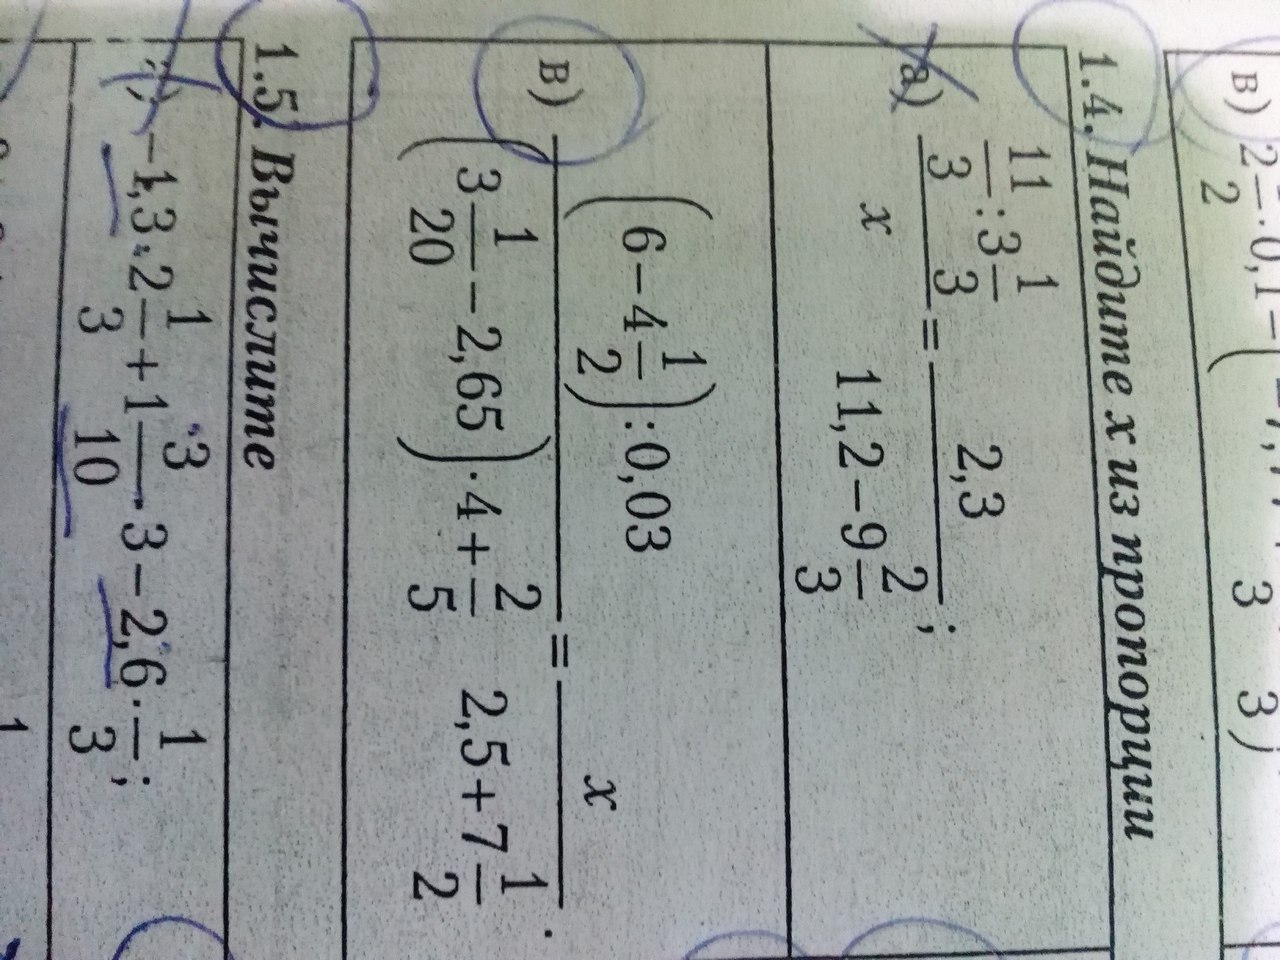 в) 2 1/2 : 0,1 =
1.4. Найдите x из пропорции
а) (11/3 : 3 1/3)/x = 2,3/(11,2 − 9 2/3);
в) ((6 − 4 1/2) : 0,03)/((3 1/20 − 2,65) · 4 + 2/5) = x/(2,5 + 7 1/2).
1.5. Вычислите
−1,3 · 2 1/3 + 1 3/10 · 3 − 2,6 · 1/3;